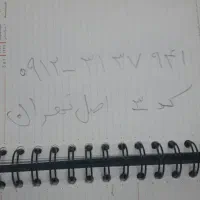 ۰۹۱۲ - ۳۱ ۳۷ ۹۴۱
کد ۳ اصل تهران